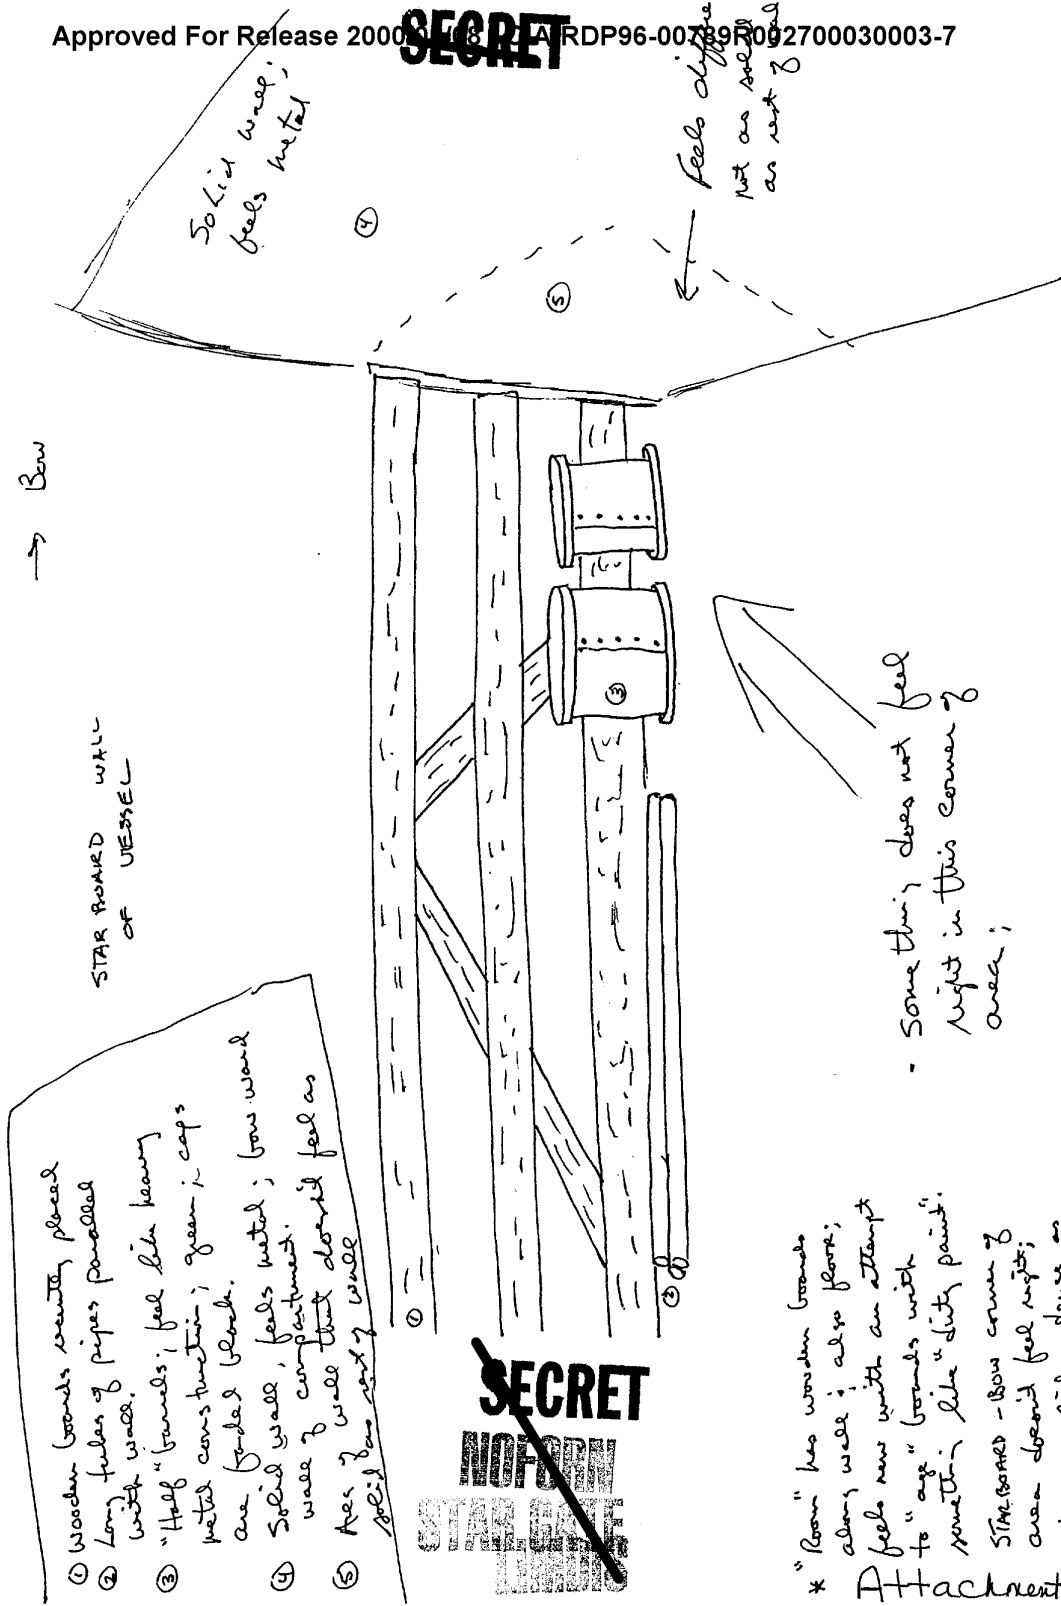 Approved For Release 2000/08/08 : CIA-RDP96-00789R002700030003-7
SECRET
Solid wall;
feels metal
Feels
not as solid
as rest of
④
⑤
→ Bow
STARBOARD WALL
OF VESSEL
③
- Something does not feel
right in this corner of
area;
① Wooden boards recently placed
② Long tubes of pipes parallel
with wall.
③ "Half" barrels; feel like heavy
metal construction; green; caps
are faded black.
④ Solid wall, feels metal; bow ward
wall of compartment.
⑤ Area of wall that doesn't feel as
solid as rest of wall
①
②
SECRET
NOFORN
STAR GATE
LIMDIS
* "Room" has wooden boards
along wall; also floor;
feels new with an attempt
to "age" boards with
something like "dirty paint".
STARBOARD - BOW corner of
area doesn't feel right;
Attachment